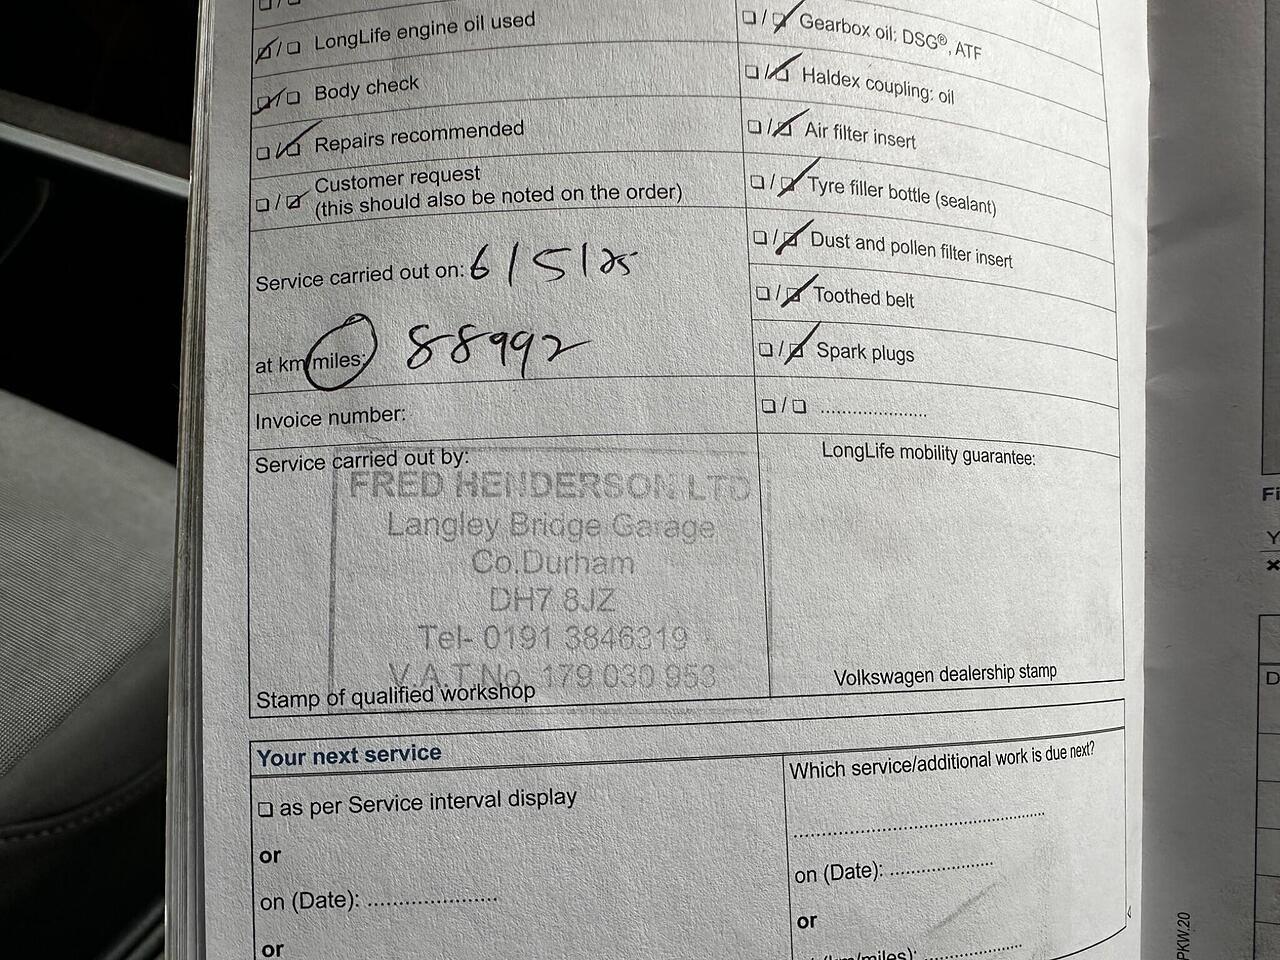 LongLife engine oil used
Body check
Repairs recommended
Customer request
(this should also be noted on the order)
Service carried out on: 6/5/25
at km/miles: 88992
Invoice number:
Service carried out by:
FRED HENDERSON LTD
Langley Bridge Garage
Co.Durham
DH7 8JZ
Tel- 0191 3846319
V.A.T.No. 179 030 953
Stamp of qualified workshop
Gearbox oil: DSG®, ATF
Haldex coupling: oil
Air filter insert
Tyre filler bottle (sealant)
Dust and pollen filter insert
Toothed belt
Spark plugs
....................
LongLife mobility guarantee:
Volkswagen dealership stamp
Your next service
as per Service interval display
or
on (Date): ........................
or
Which service/additional work is due next?
..............................................
on (Date): ....................
or
(km/miles): ....................
PKW.20
Fi
Y
D